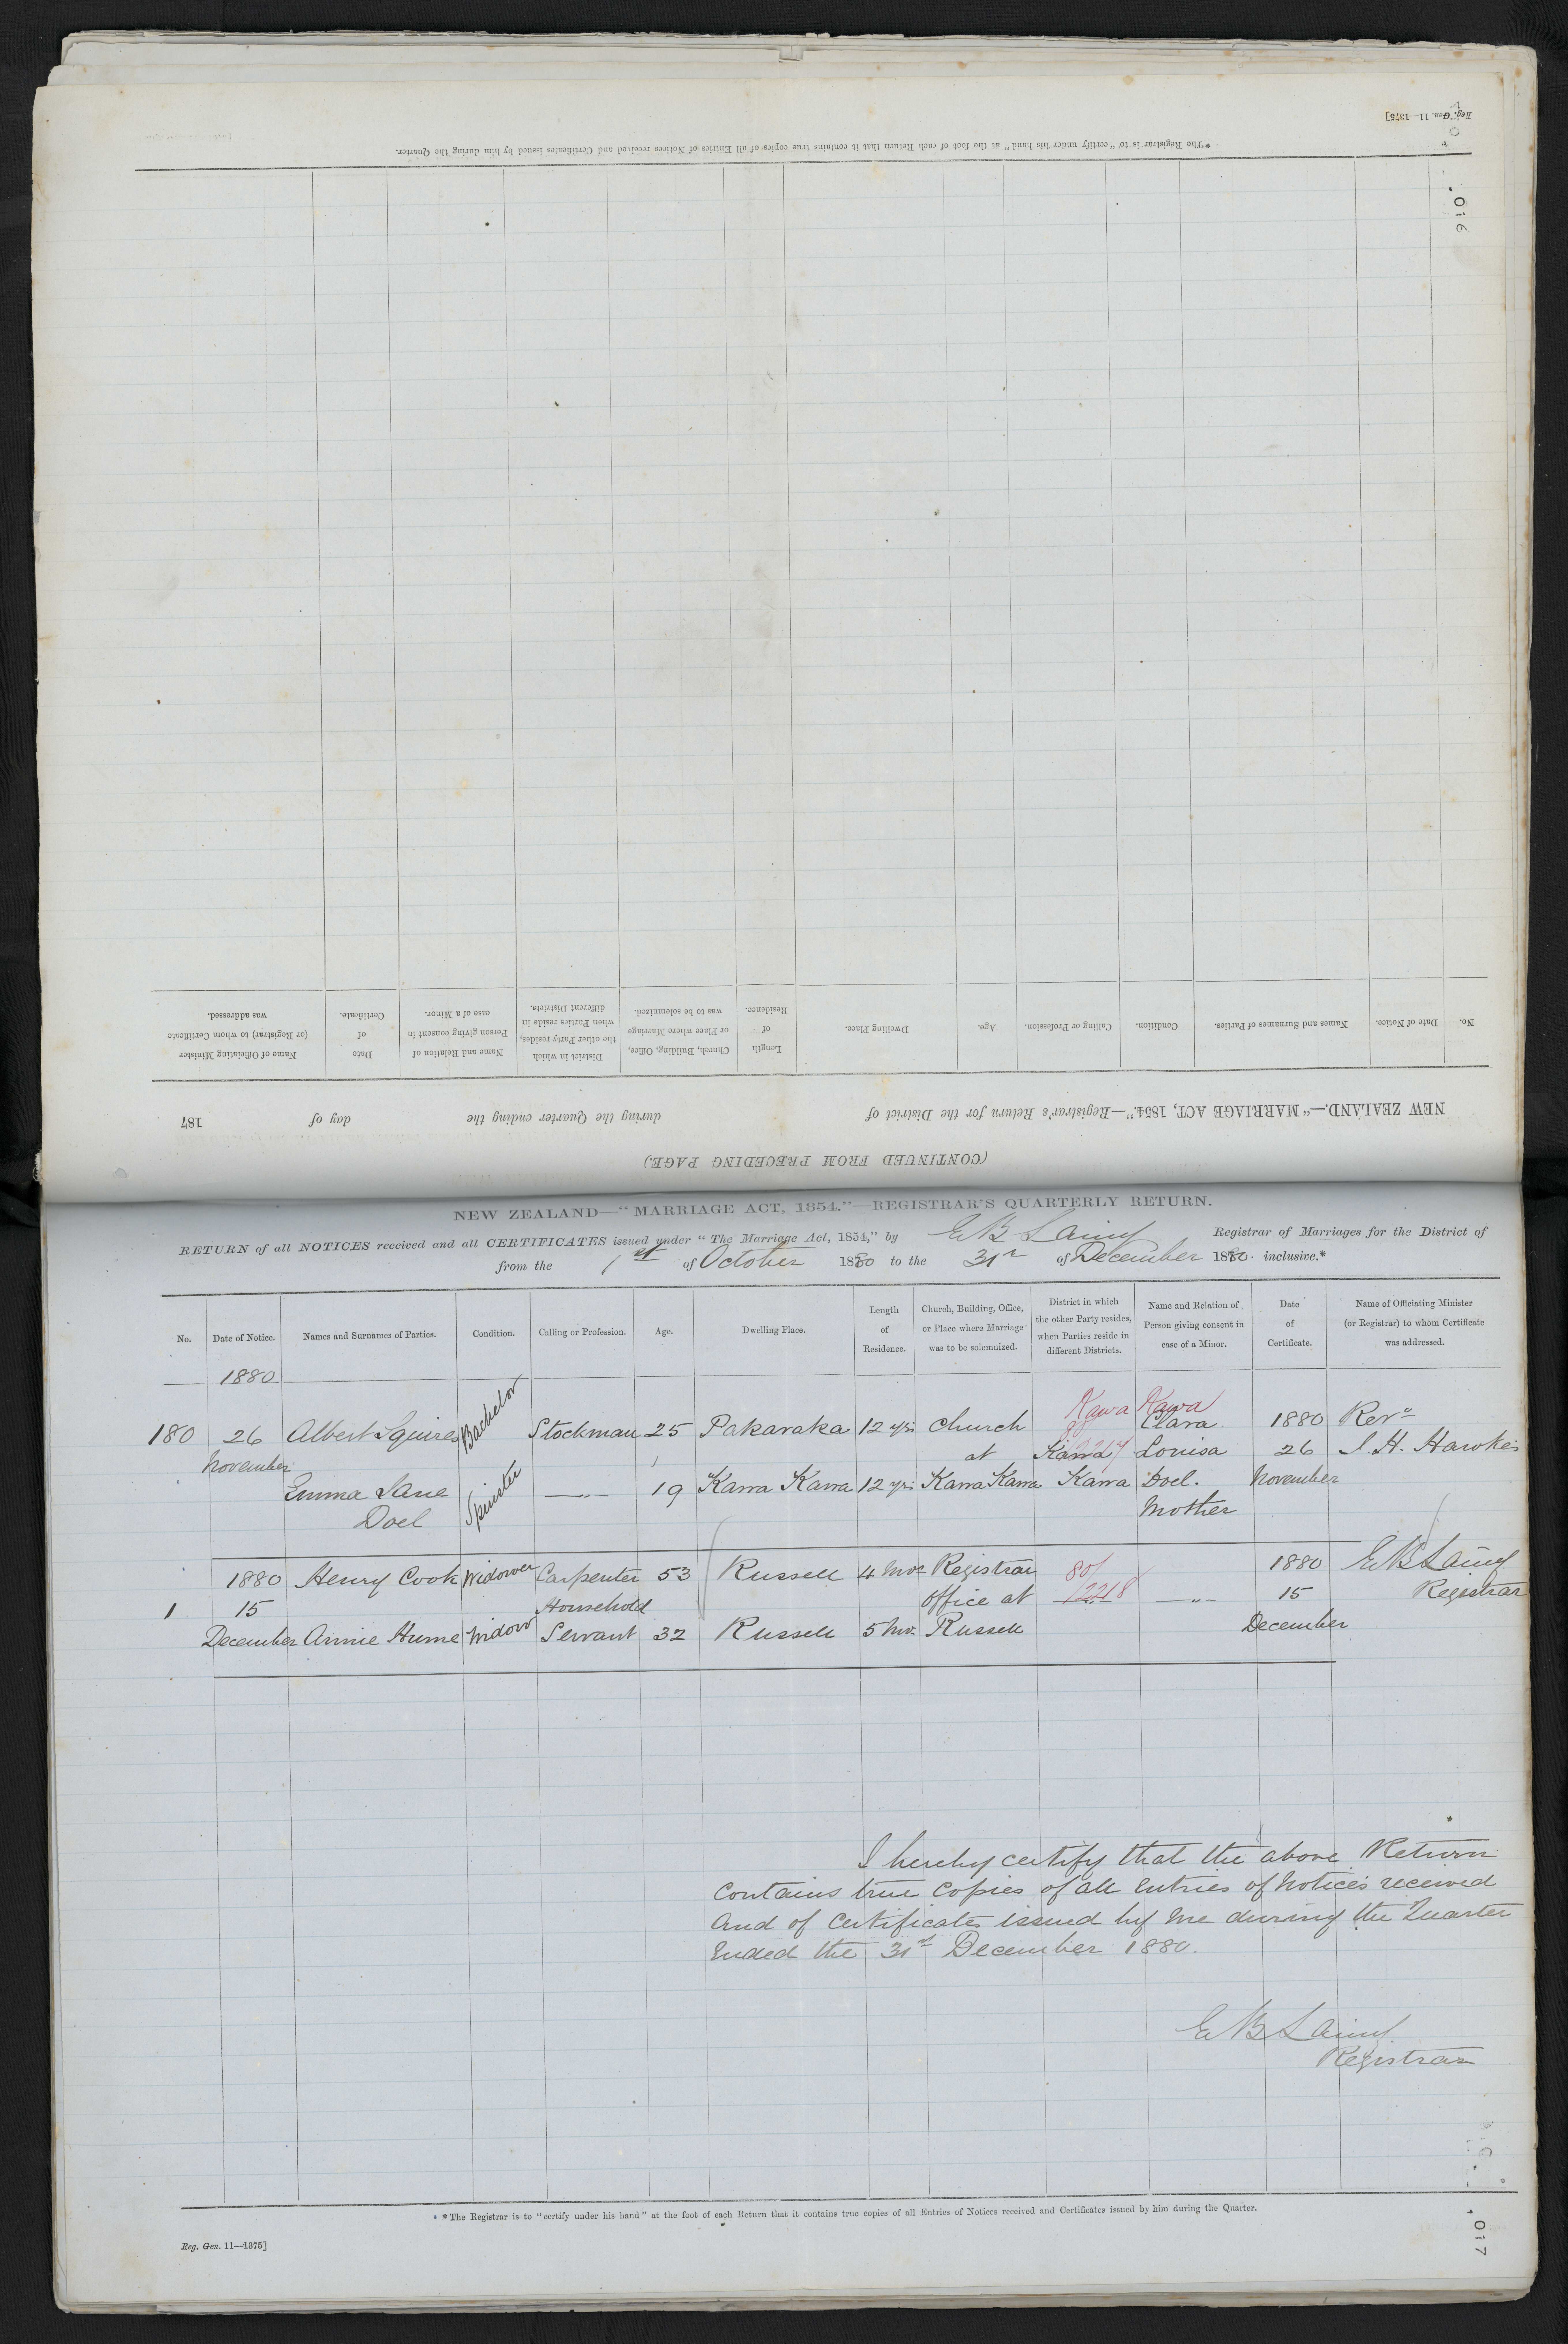 Reg. Gen. 11—1375]
* The Registrar is to "certify under his hand" at the foot of each Return that it contains true copies of all Entries of Notices received and Certificates issued by him during the Quarter.
016
(CONTINUED FROM PRECEDING PAGE)
NEW ZEALAND.—"MARRIAGE ACT, 1854."—Registrar's Return for the District of during the Quarter ending the day of 187
No.
Date of Notice.
Names and Surnames of Parties.
Condition.
Calling or Profession.
Age.
Dwelling Place.
Length
of
Residence.
Church, Building, Office,
or Place where Marriage
was to be solemnized.
District in which
the other Party resides,
when Parties reside in
different Districts.
Name and Relation of
Person giving consent in
case of a Minor.
Date
of
Certificate.
Name of Officiating Minister
(or Registrar) to whom Certificate
was addressed.
NEW ZEALAND—"MARRIAGE ACT, 1854."—REGISTRAR'S QUARTERLY RETURN.
RETURN of all NOTICES received and all CERTIFICATES issued under "The Marriage Act, 1854," by E B Laing Registrar of Marriages for the District of
from the 1st of October 1880 to the 31st of December 1880 inclusive.*
No.
Date of Notice.
Names and Surnames of Parties.
Condition.
Calling or Profession.
Age.
Dwelling Place.
Length
of
Residence.
Church, Building, Office,
or Place where Marriage
was to be solemnized.
District in which
the other Party resides,
when Parties reside in
different Districts.
Name and Relation of
Person giving consent in
case of a Minor.
Date
of
Certificate.
Name of Officiating Minister
(or Registrar) to whom Certificate
was addressed.
1880
Kawa Kawa
180 26 Albert Squires Bachelor Stockman 25 Pakaraka 12 yrs Church Clara 1880 Revd
at Kawa Louisa 26 J. H. Hawkes
November
Emma Jane Spinster —„— 19 Kawa Kawa 12 yrs Kawa Kawa Kawa Doel. November
Doel Mother
1880 Henry Cook Widower Carpenter 53 Russell 4 Mos Registrar 80/ 1880 E B Laing
1 15 Household office at 2218 —„— 15 Registrar
December Annie Hume Widow Servant 32 Russell 5 Mos Russell December
I hereby certify that the above Return
contains true copies of all entries of Notices received
and of Certificates issued by me during the Quarter
ended the 31st December 1880.
E B Laing
Registrar
* The Registrar is to "certify under his hand" at the foot of each Return that it contains true copies of all Entries of Notices received and Certificates issued by him during the Quarter.
Reg. Gen. 11—1375]
017